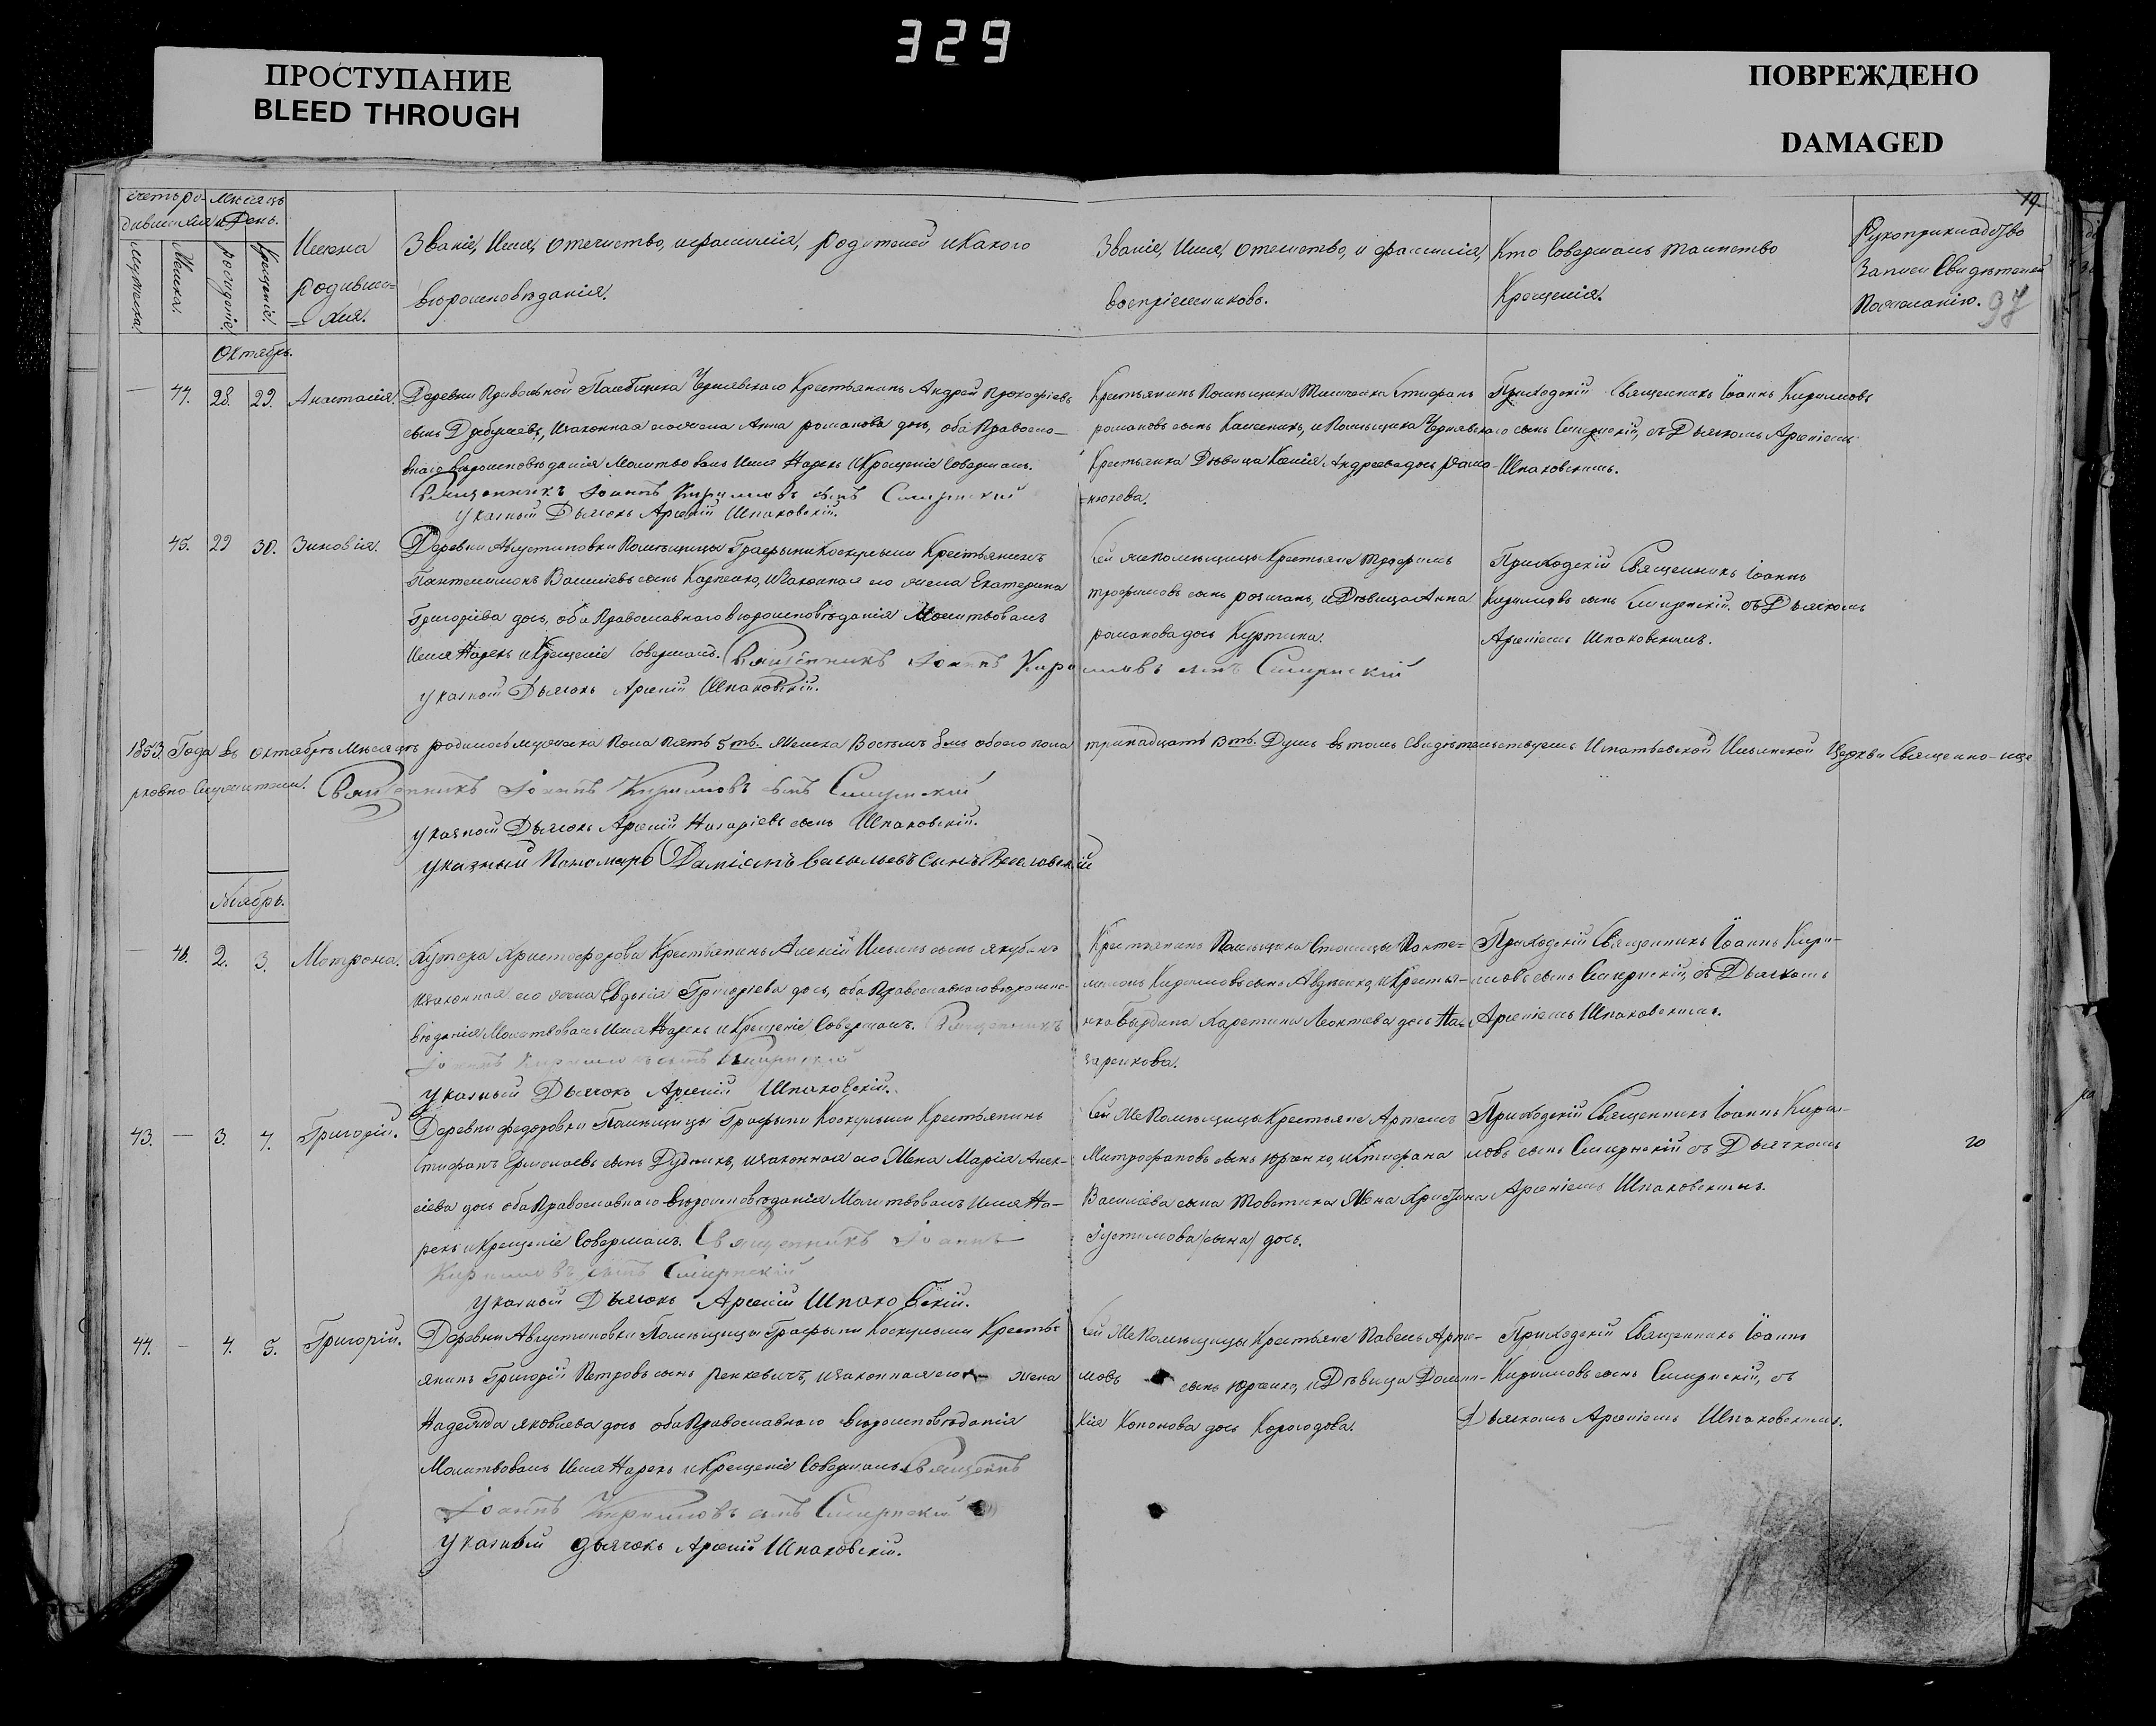 329
ПРОСТУПАНИЕ
BLEED THROUGH
ПОВРЕЖДЕНО
DAMAGED
19.
97
Счетъ ро-
дившихся
Мѣсяцъ
и День.
мужеска
Женска.
рожденіе
Крещеніе.
Имена
родивши=
=хся.
Званіе, Имя, Отечество, и фамилія, родителей и какого
вѣроисповѣданія.
Званіе, Имя, отечество, и фамилія,
воспріемниковъ.
Кто Совершалъ таинство
Крещенія.
Рукоприкладство
Записи Свидѣтелей
Пожеланію.
Октябрь.
44. 28. 29. Анастасія.
Деревни Привольной Помѣщика Чернявского Крестьянинъ Андрей Прокофіевъ
сынъ законная его жена Анна романова дочь, оба Правосла-
внаго вѣроисповѣданія Молитвовалъ Имя Нарекъ и Крещеніе Совершалъ.
Священникъ Іоаннъ Кириловъ сынъ Смирнскій
указный Дьячокъ Арсеній Шпаковскій.
Крестьянинъ Помѣщика Стифанъ
романовъ сынъ и Помѣщика Чернявского
Крестьянка Дѣвица Ксенія Андреева дочь
Приходскій Священникъ Іоаннъ Кириловъ
сынъ Смирнскій, съ Дьячкомъ Арсеніемъ
Шпаковскимъ.
45. 29 30. Зиновія.
Деревни Августиновки Помѣщицы Графыни Крестьянинъ
Пантелимонъ Василіевъ сынъ Карпенко, и Законная его жена Екатерина
Григоріева дочь, оба Православнаго вѣроисповѣданія Молитвовалъ
Имя Нарекъ и Крещеніе Совершалъ. Священникъ Іоаннъ Кириловъ сынъ Смирнскій
указный Дьячокъ Арсеній Шпаковскій.
Сей же Помѣщицы Крестьяне Трофимъ
трофимовъ сынъ и Дѣвица Анна
романова дочь Куртина.
Приходскій Священникъ Іоаннъ
Кириловъ сынъ Смирнскій. съ Дьячкомъ
Арсеніемъ Шпаковскимъ.
1853 Года въ октябрѣ Мѣсяцѣ родилось мужеска Пола Пять 5ть. Женска Восемь 8мь обоего пола тринадцать 13ть. Душъ въ томъ Свидѣтельствуемъ Игнатьевской Ильинской Церкви Священно-це
рковно Служители. Священникъ Іоаннъ Кириловъ сынъ Смирнскій
указной Дьячокъ Арсеній Назаріевъ сынъ Шпаковскій.
указный Пономарь Даміанъ Васильевъ Сынъ
Ноябрь.
46. 2. 3. Матрона.
Хутора Христофорова Крестьянинъ Алексій Ильинъ сынъ
Изаконная его жена Евдокія Григоріева дочь, оба Православнаго вѣроиспо-
вѣданія Молитвовалъ Имя Нарекъ и Крещеніе Совершалъ. Священникъ
Іоаннъ Кириловъ сынъ Смирнскій
указный Дьячокъ Арсеній Шпаковскій.
Крестьянинъ Помѣщика Панте=
лимонъ Кириловъ сынъ и Крестья-
нка Леонтева дочь На-
заренкова.
Приходскій Священникъ Іоаннъ Кири-
ловъ сынъ Смирнскій, съ Дьячкомъ
Арсеніемъ Шпаковскимъ.
43. 3. 4. Григорій.
Деревни Федоровки Помѣщицы Графыни Крестьянинъ
Стифанъ Ермолаевъ сынъ Дудникъ, изаконная его Жена Марія Алек-
сіева дочь оба Православнаго вѣроисповѣданія Молитвовалъ Имя На-
рекъ и Крещеніе Совершалъ. Священникъ Іоаннъ
Кириловъ сынъ Смирнскій
указный Дьячокъ Арсеній Шпаковскій.
Сей Же Помѣщицы Крестьяне Артемъ
Митрофановъ сынъ Юрченко, и Стифана
Василіева сына Жена Христина
Густимова дочь.
Приходскій Священникъ Іоаннъ Кири-
ловъ сынъ Смирнскій съ Дьячкомъ
Арсеніемъ Шпаковскимъ.
20
44. 4. 5. Григорій.
Деревни Августиновки Помѣщицы Графыни Кресть-
янинъ Григорій Петровъ сынъ Ренкевичъ, изаконная его жена
Надежда яковлева дочь оба Православнаго вѣроисповѣданія
Молитвовалъ Имя Нарекъ и Крещеніе Совершалъ Священникъ
Іоаннъ Кириловъ сынъ Смирнскій
указный дьячокъ Арсеній Шпаковскій.
Сей Же Помѣщицы Крестьяне Павелъ
сынъ Юрченко, и Дѣвица
Кононова дочь
Приходскій Священникъ Іоаннъ
Кириловъ сынъ Смирнскій, съ
Дьячкомъ Арсеніемъ Шпаковскимъ.